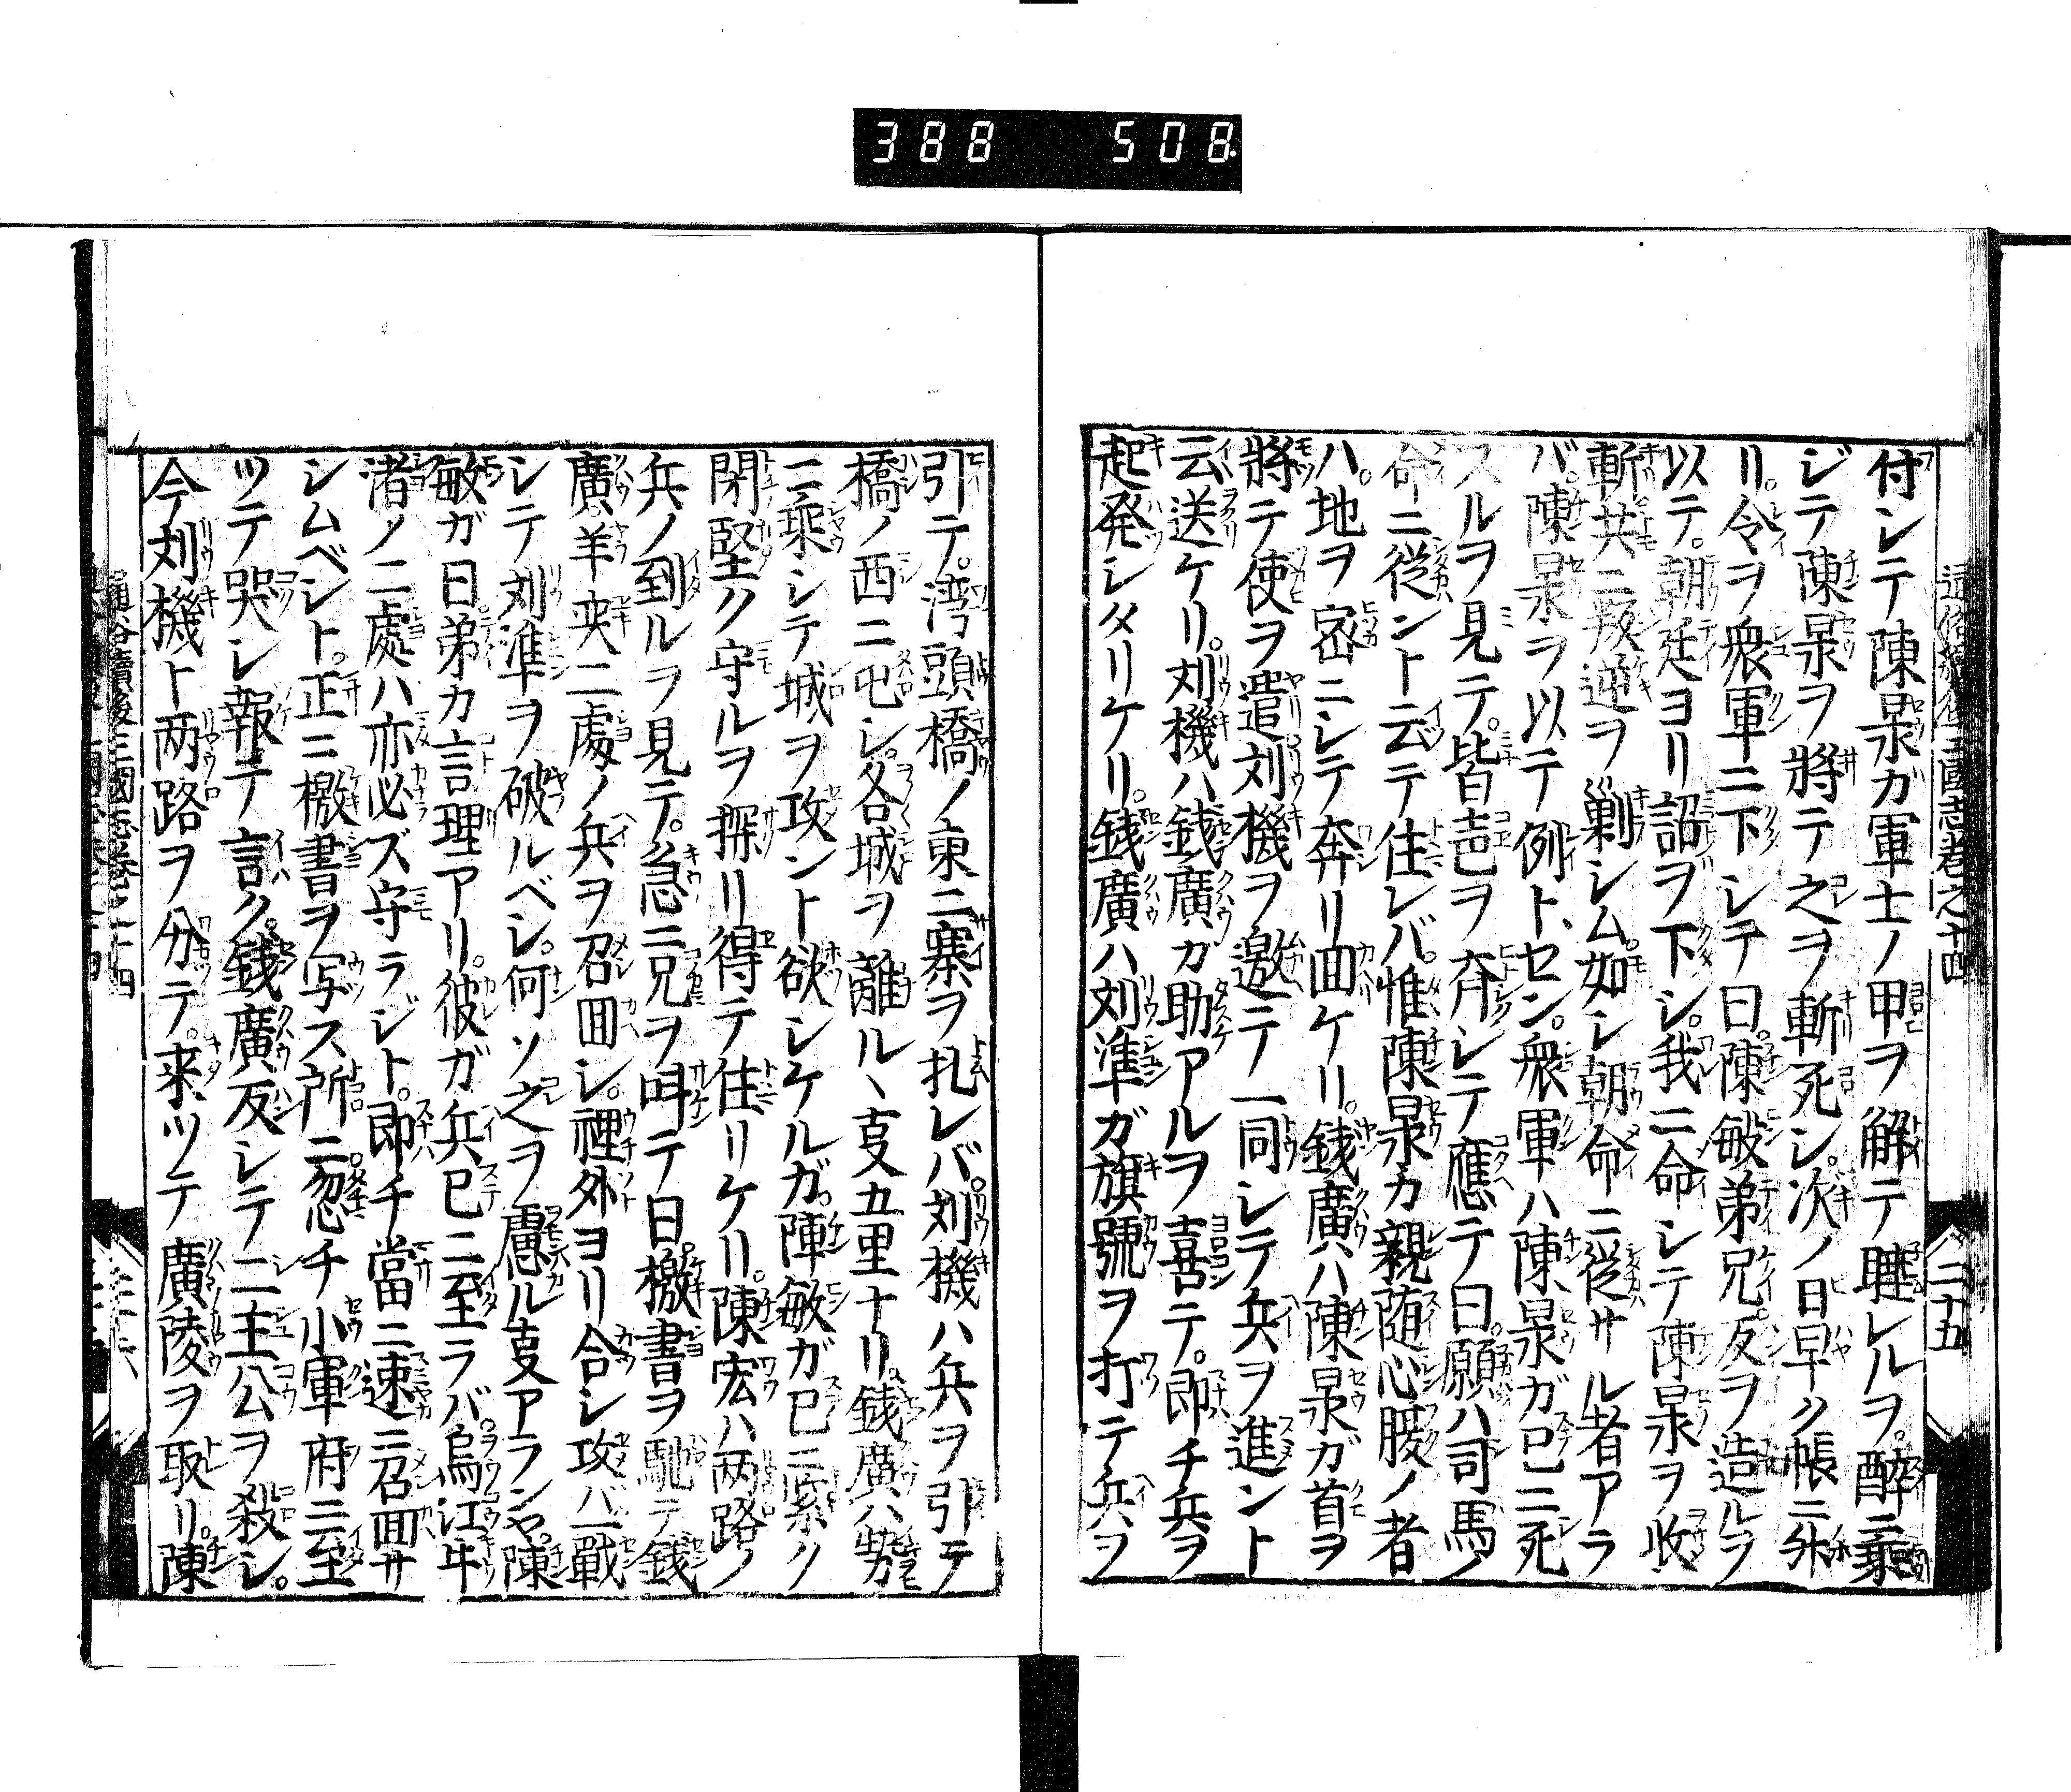 388 508
通俗續後三國志卷之十四
二十五
付シテ陳泉ガ軍士ノ甲ヲ解テ睡レルヲ。醉ニ乗
ジテ陳泉ヲ將テ之ヲ斬死シ。次ノ日早ク帳ニ外
リ。令ヲ衆軍ニ下シテ曰。陳敏弟兄。反ヲ造ルヲ
以テ。朝廷ヨリ詔ヲ下シ。我ニ命シテ陳泉ヲ收
斬共ニ叛逆ヲ剿シム。如シ朝命ニ從サル者アラ
バ。陳泉ヲ以テ例トセン。衆軍ハ陳泉ガ已ニ死
スルヲ見テ。皆声ヲ斉シテ應テ曰。願ハ司馬ノ
命ニ從ント云テ住レバ。惟陳泉カ親随心腹ノ者
ハ。地ヲ密ニシテ奔リ囬ケリ。銭廣ハ陳泉ガ首ヲ
將テ使ヲ遣。刘機ヲ邀テ一同シテ兵ヲ進ント
云送ケリ。刘機ハ銭廣カ助アルヲ喜テ。即チ兵ヲ
起発シタリケリ。銭廣ハ刘準ガ旗號ヲ打テ兵ヲ
引テ。湾頭橋ノ東ニ寨ヲ扎レバ。刘機ハ兵ヲ引テ
橋ノ西ニ屯シ。各城ヲ離ル丶㕝五里ナリ。銭廣ハ勢
ニ乘シテ城ヲ攻ント欲シケルガ。陣敏ガ已ニ緊ク
閉堅ク守ルヲ探リ得テ住リケリ。陳宏ハ两路ノ
兵ノ到ルヲ見テ。急ニ兄ヲ呌テ曰。檄書ヲ馳テ銭
廣。羊央二處ノ兵ヲ召囬シ。裡外ヨリ合シ攻バ一戰
シテ刘準ヲ破ルベシ。何ソ之ヲ慮ル㕝アランヤ。陳
敏ガ曰弟カ言理アリ。彼ガ兵已ニ至ラバ。烏江牛
渚ノ二處ハ亦必ズ守ラジト。即チ當ニ速ニ召囬サ
シムベシト。正ニ檄書ヲ写ス所ニ。忽チ小軍府ニ至
ツテ哭シ報テ言ク。銭廣反シテ二主公ヲ殺シ。
今刘機ト两路ヲ分テ。来ツテ廣陵ヲ取リ。陳
通俗續後三國志卷之十四